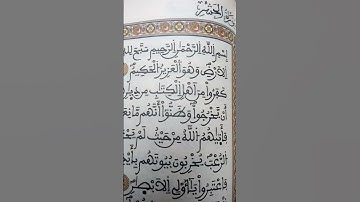 سورة الحشر
بِسْمِ اللَّهِ الرَّحْمَٰنِ الرَّحِيمِ سَبَّحَ لِلهِ
الْأَرْضِ وَهُوَ الْعَزِيزُ الْحَكِيمُ
كَفَرُوا مِنْ أَهْلِ الْكِتَابِ مِن
أَنْ يَخْرُجُوا وَظَنُّوا أَنَّهُم مَّانِعَ
فَأَتَاهُمُ اللَّهُ مِنْ حَيْثُ لَمْ
الرُّعْبَ يُخْرِبُونَ بُيُوتَهُم
فَاعْتَبِرُوا يَا أُولِي الْأَبْصَارِ